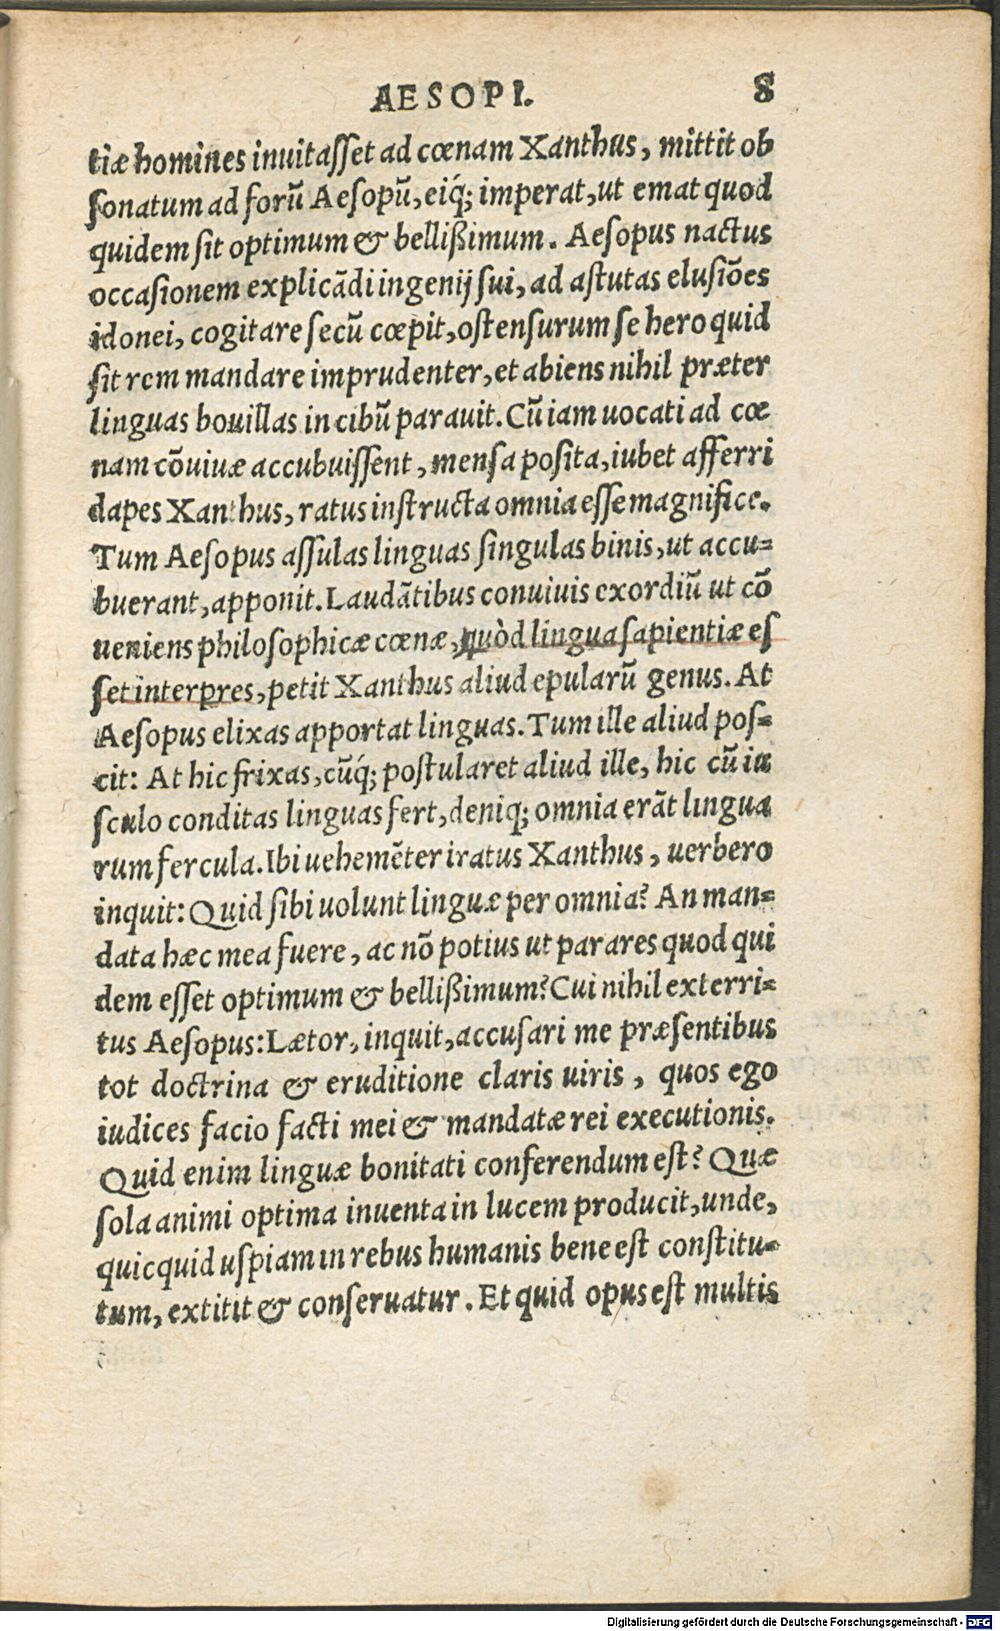 AESOPI. 8
tiæ homines inuitasſet ad cœnam Xanthus, mittit ob
ſonatum ad forū Aeſopū, eiq́; imperat, ut emat quod
quidem ſit optimum & belliſsimum. Aeſopus nactus
occaſionem explicādi ingenij ſui, ad aſtutas eluſiōes
idonei, cogitare ſecū cœpit, oſtenſurum ſe hero quid
ſit rem mandare imprudenter, et abiens nihil præter
linguas bouillas in cibū parauit. Cū iam uocati ad cœ
nam cōuiuæ accubuiſſent, menſa poſita, iubet afferri
dapes Xanthus, ratus inſtructa omnia eſſe magnifice.
Tum Aeſopus aſſulas linguas ſingulas binis, ut accu-
buerant, apponit. Laudātibus conuiuis exordiū ut cō
ueniens philoſophicæ cœnæ, quòd lingua ſapientiæ eſ
ſet interpres, petit Xanthus aliud epularū genus. At
Aeſopus elixas apportat linguas. Tum ille aliud poſ-
cit: At hic frixas, cūq́; poſtularet aliud ille, hic cū iu
ſculo conditas linguas fert, deniq; omnia erāt lingua
rum fercula. Ibi uehemēter iratus Xanthus, uerbero
inquit: Quid ſibi uolunt linguæ per omnia? An man-
data hæc mea fuere, ac nō potius ut parares quod qui
dem eſſet optimum & belliſsimum? Cui nihil exterri-
tus Aeſopus: Lætor, inquit, accuſari me præſentibus
tot doctrina & eruditione claris uiris, quos ego
iudices facio facti mei & mandatæ rei executionis.
Quid enim linguæ bonitati conferendum eſt? Quæ
ſola animi optima inuenta in lucem producit, unde,
quicquid uſpiam in rebus humanis bene eſt conſtitu-
tum, extitit & conſeruatur. Et quid opus eſt multis
Digitalisierung gefördert durch die Deutsche Forschungsgemeinschaft - DFG